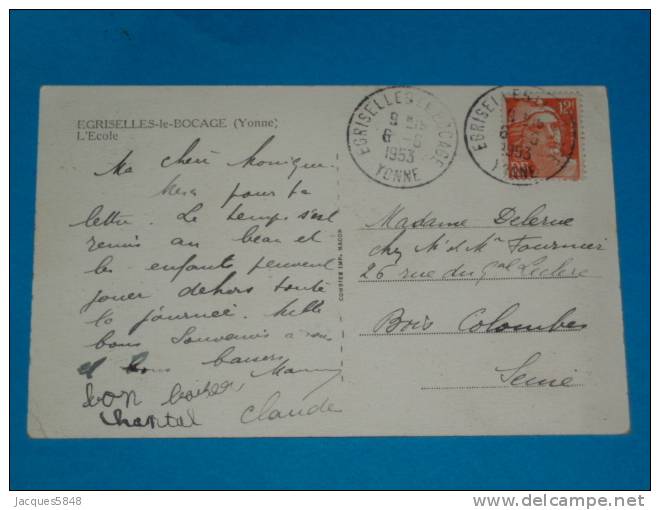 EGRISELLES-le-BOCAGE (Yonne)
L'Ecole
Ma chère Monique
Merci pour ta
lettre. Le temps s'est
remis au beau et
les enfants peuvent
jouer dehors toute
la journée. Mille
bons souvenirs à vous
et bons baisers
Mamy
bon baiser
Chantal
Claude
COURTIER IMP. MACON
EGRISELLES-LE-BOCAGE
1953
YONNE
EGRISELLES
1953
YONNE
12F
Madame Delerue
chez Mr et Me Fournier
26 rue du Gal Leclerc
Bois Colombes
Seine
Jacques5848
delcampe.net